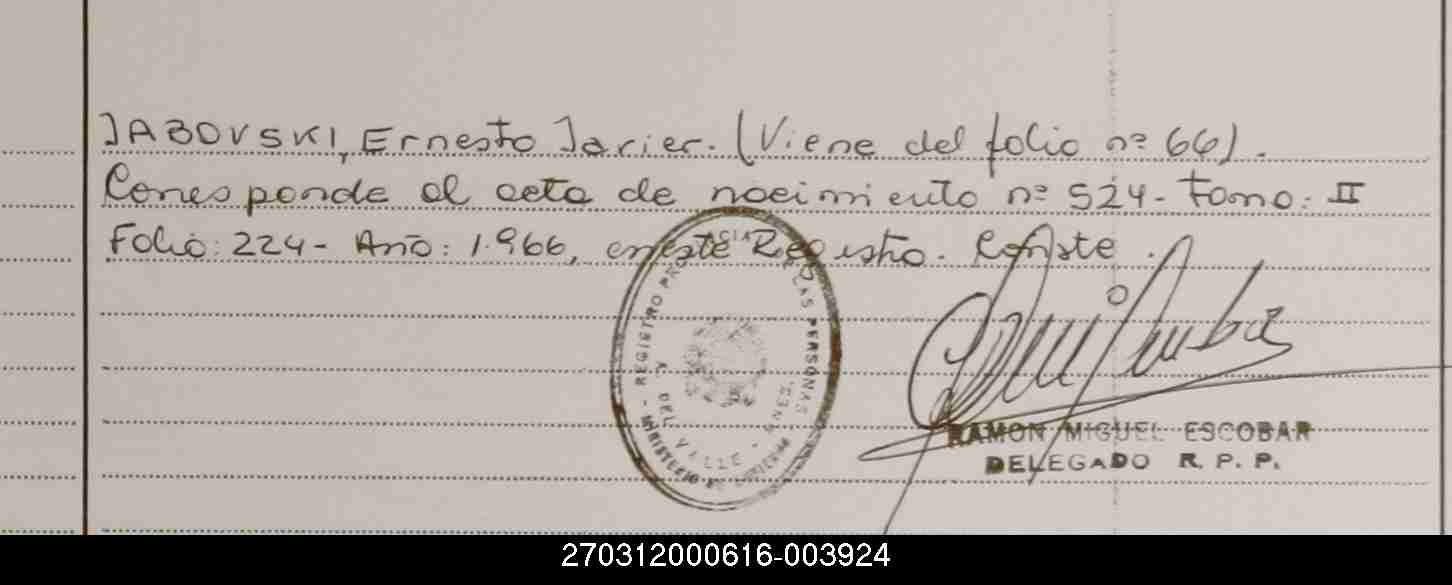 JABOVSKI, Ernesto Javier. (Viene del folio nº 66).
Corresponde al acta de nacimiento nº 524 - Tomo: II
Folio: 224 - Año: 1.966, en este Registro. Conste.
REGISTRO PROVINCIAL DE LAS PERSONAS
MINISTERIO DE
DEL VALLE - MNES.
RAMON MIGUEL ESCOBAR
DELEGADO R. P. P.
270312000616-003924